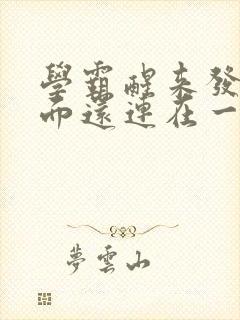 學霸醒來發
而還連在一
夢雲山